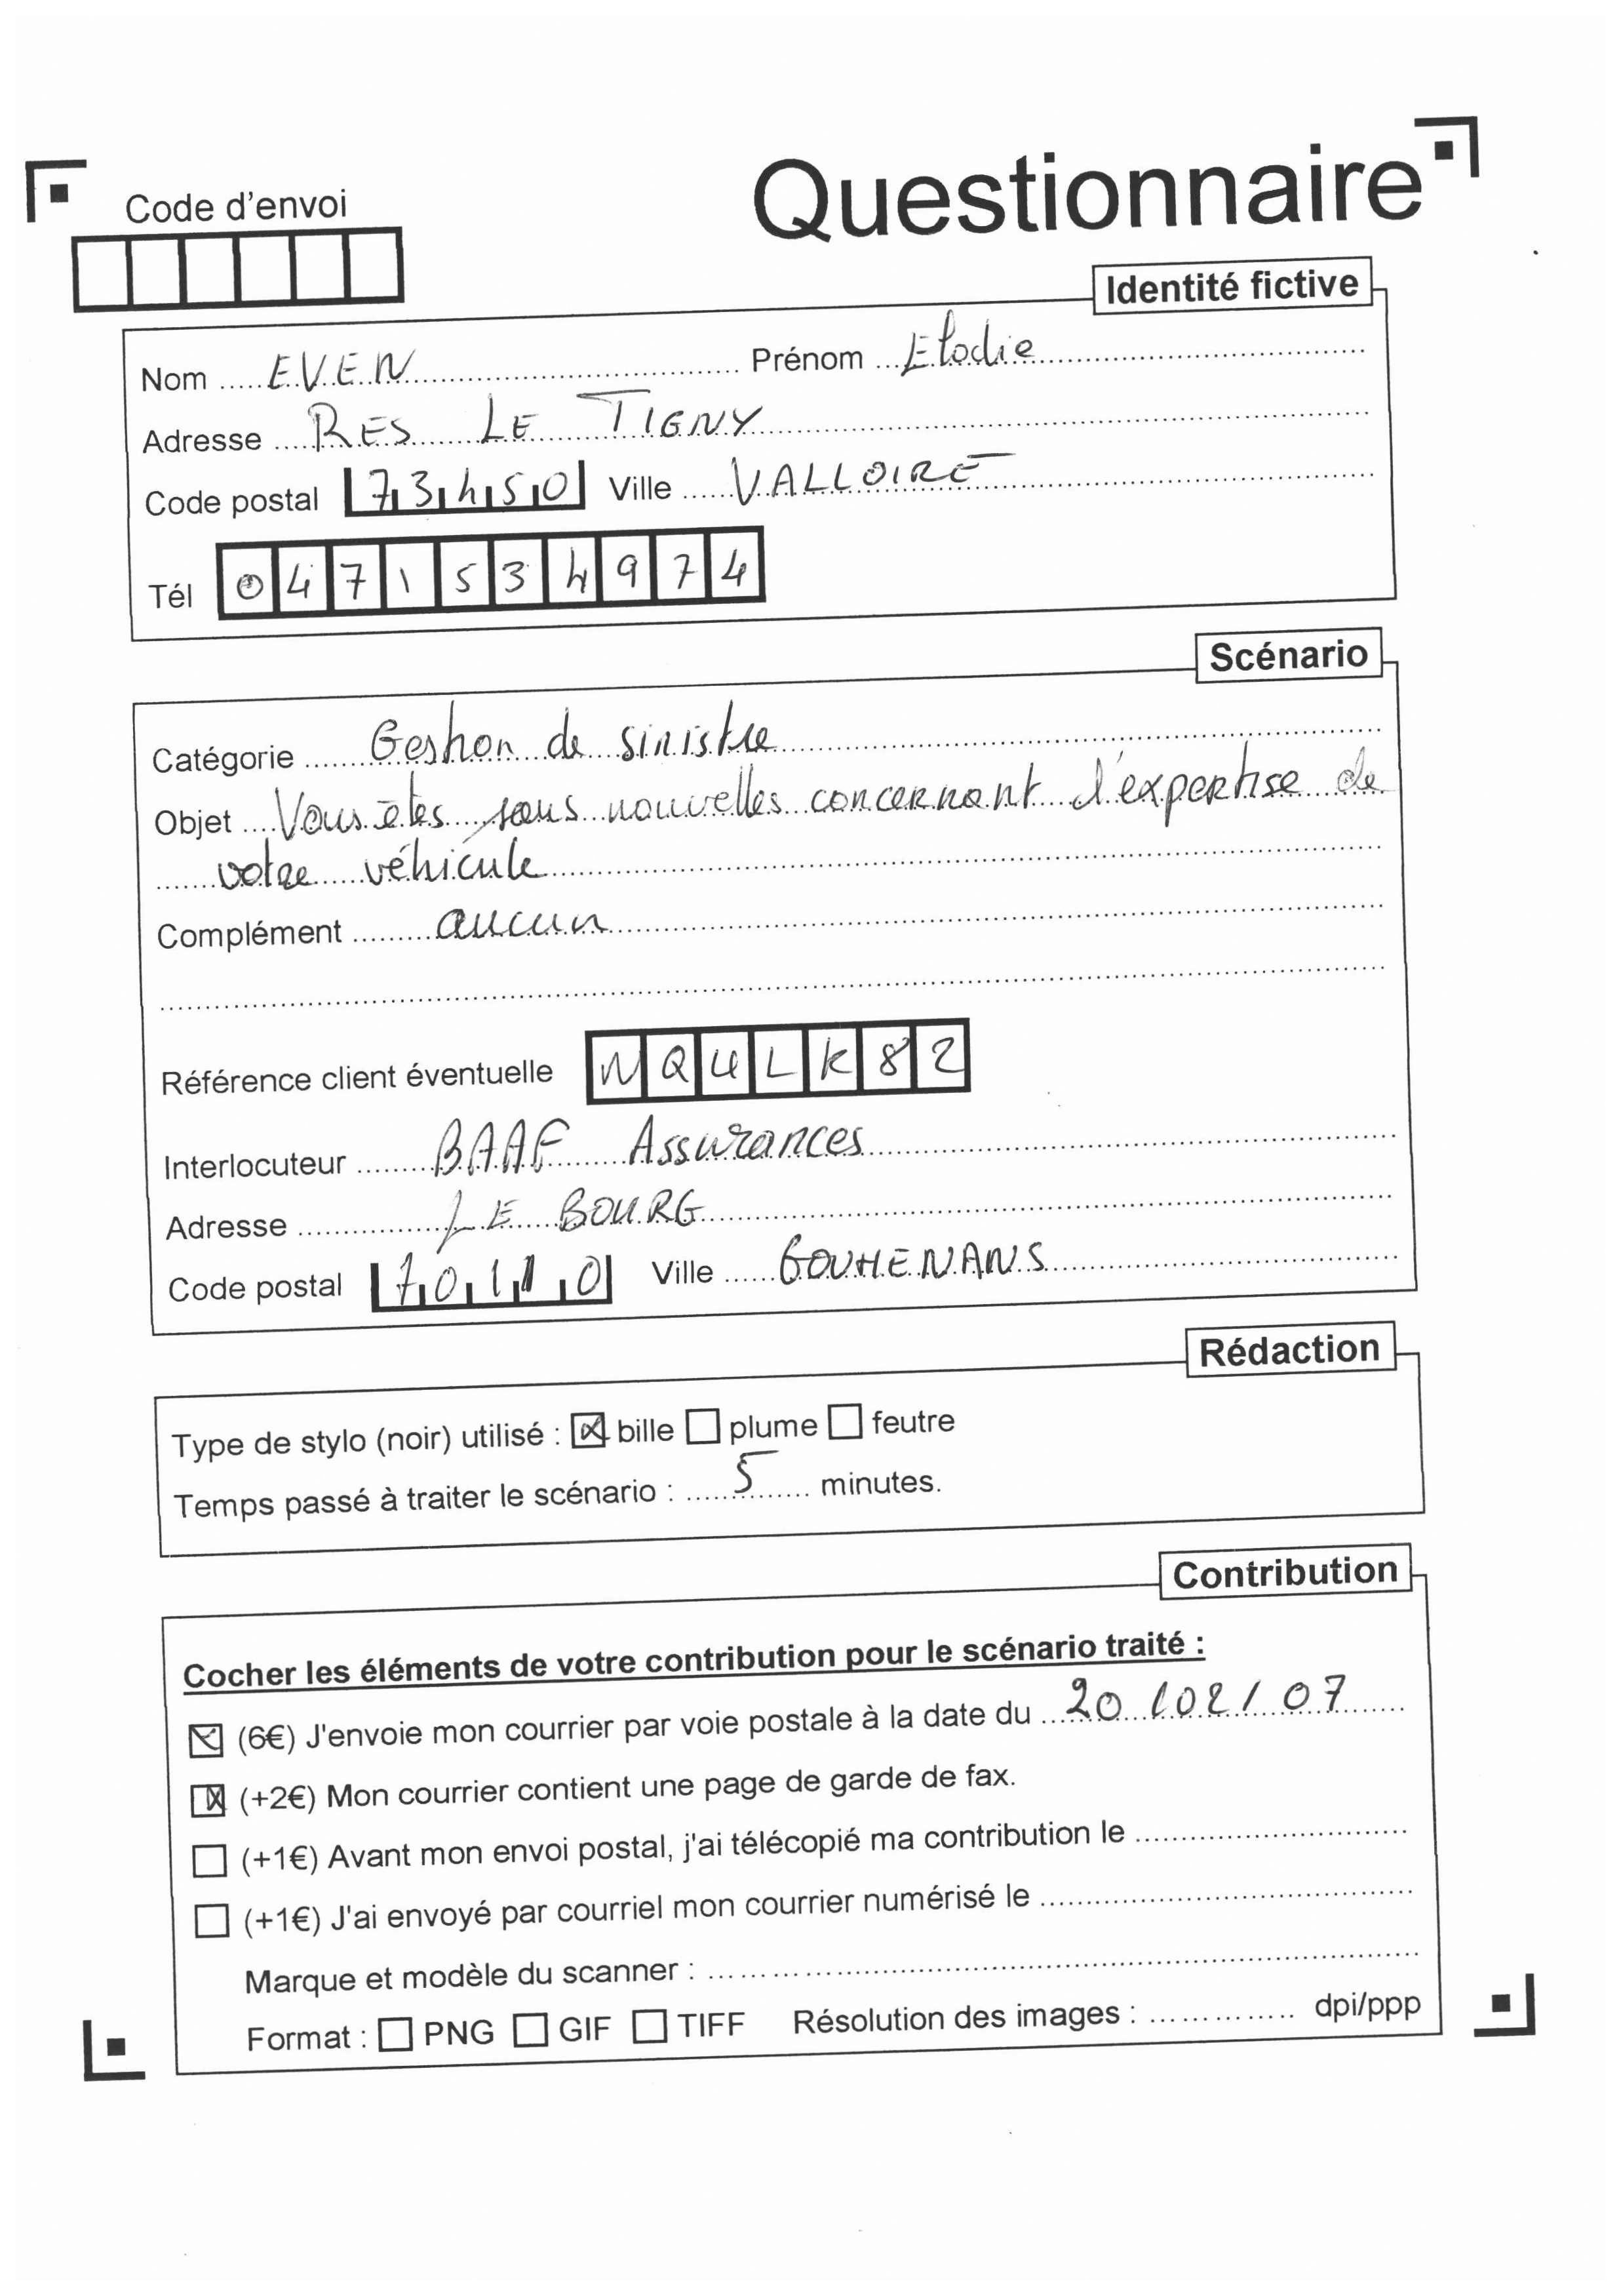 Questionnaire
Code d'envoi
Identité fictive
Nom EVEN Prénom Elodie
Adresse RES LE TIGNY
Code postal 73450 Ville VALLOIRE
Tél 0471534974
Scénario
Catégorie Gestion de sinistre
Objet Vous êtes sans nouvelles concernant l'expertise de
votre véhicule
Complément aucun
Référence client éventuelle NQULK82
Interlocuteur BAAF Assurances
Adresse LE BOURG
Code postal 70110 Ville GOUHENANS
Rédaction
Type de stylo (noir) utilisé : bille plume feutre
Temps passé à traiter le scénario : 5 minutes.
Contribution
Cocher les éléments de votre contribution pour le scénario traité :
(6€) J'envoie mon courrier par voie postale à la date du 20/02/07
(+2€) Mon courrier contient une page de garde de fax.
(+1€) Avant mon envoi postal, j'ai télécopié ma contribution le
(+1€) J'ai envoyé par courriel mon courrier numérisé le
Marque et modèle du scanner :
Format : PNG GIF TIFF Résolution des images : dpi/ppp